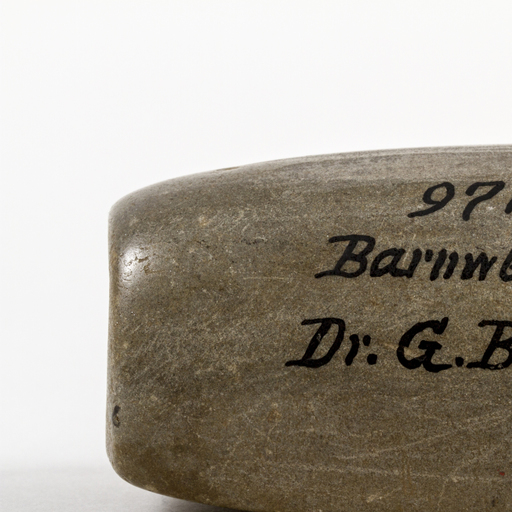 97
Barnw
Dr. G. B
6